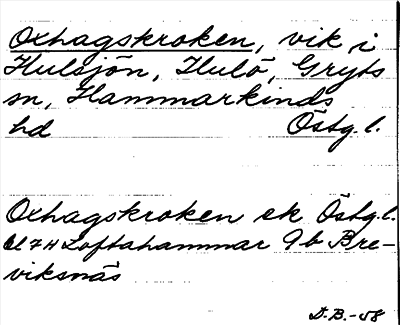 Oxhagskroken, vik i
Hulsjön, Hulö, Gryts
sn, Hammarkinds
hd Östg.l.
Oxhagskroken ek Östg.l.
bl 7H Loftahammar 9b Bre-
viksnäs
D.B.-58